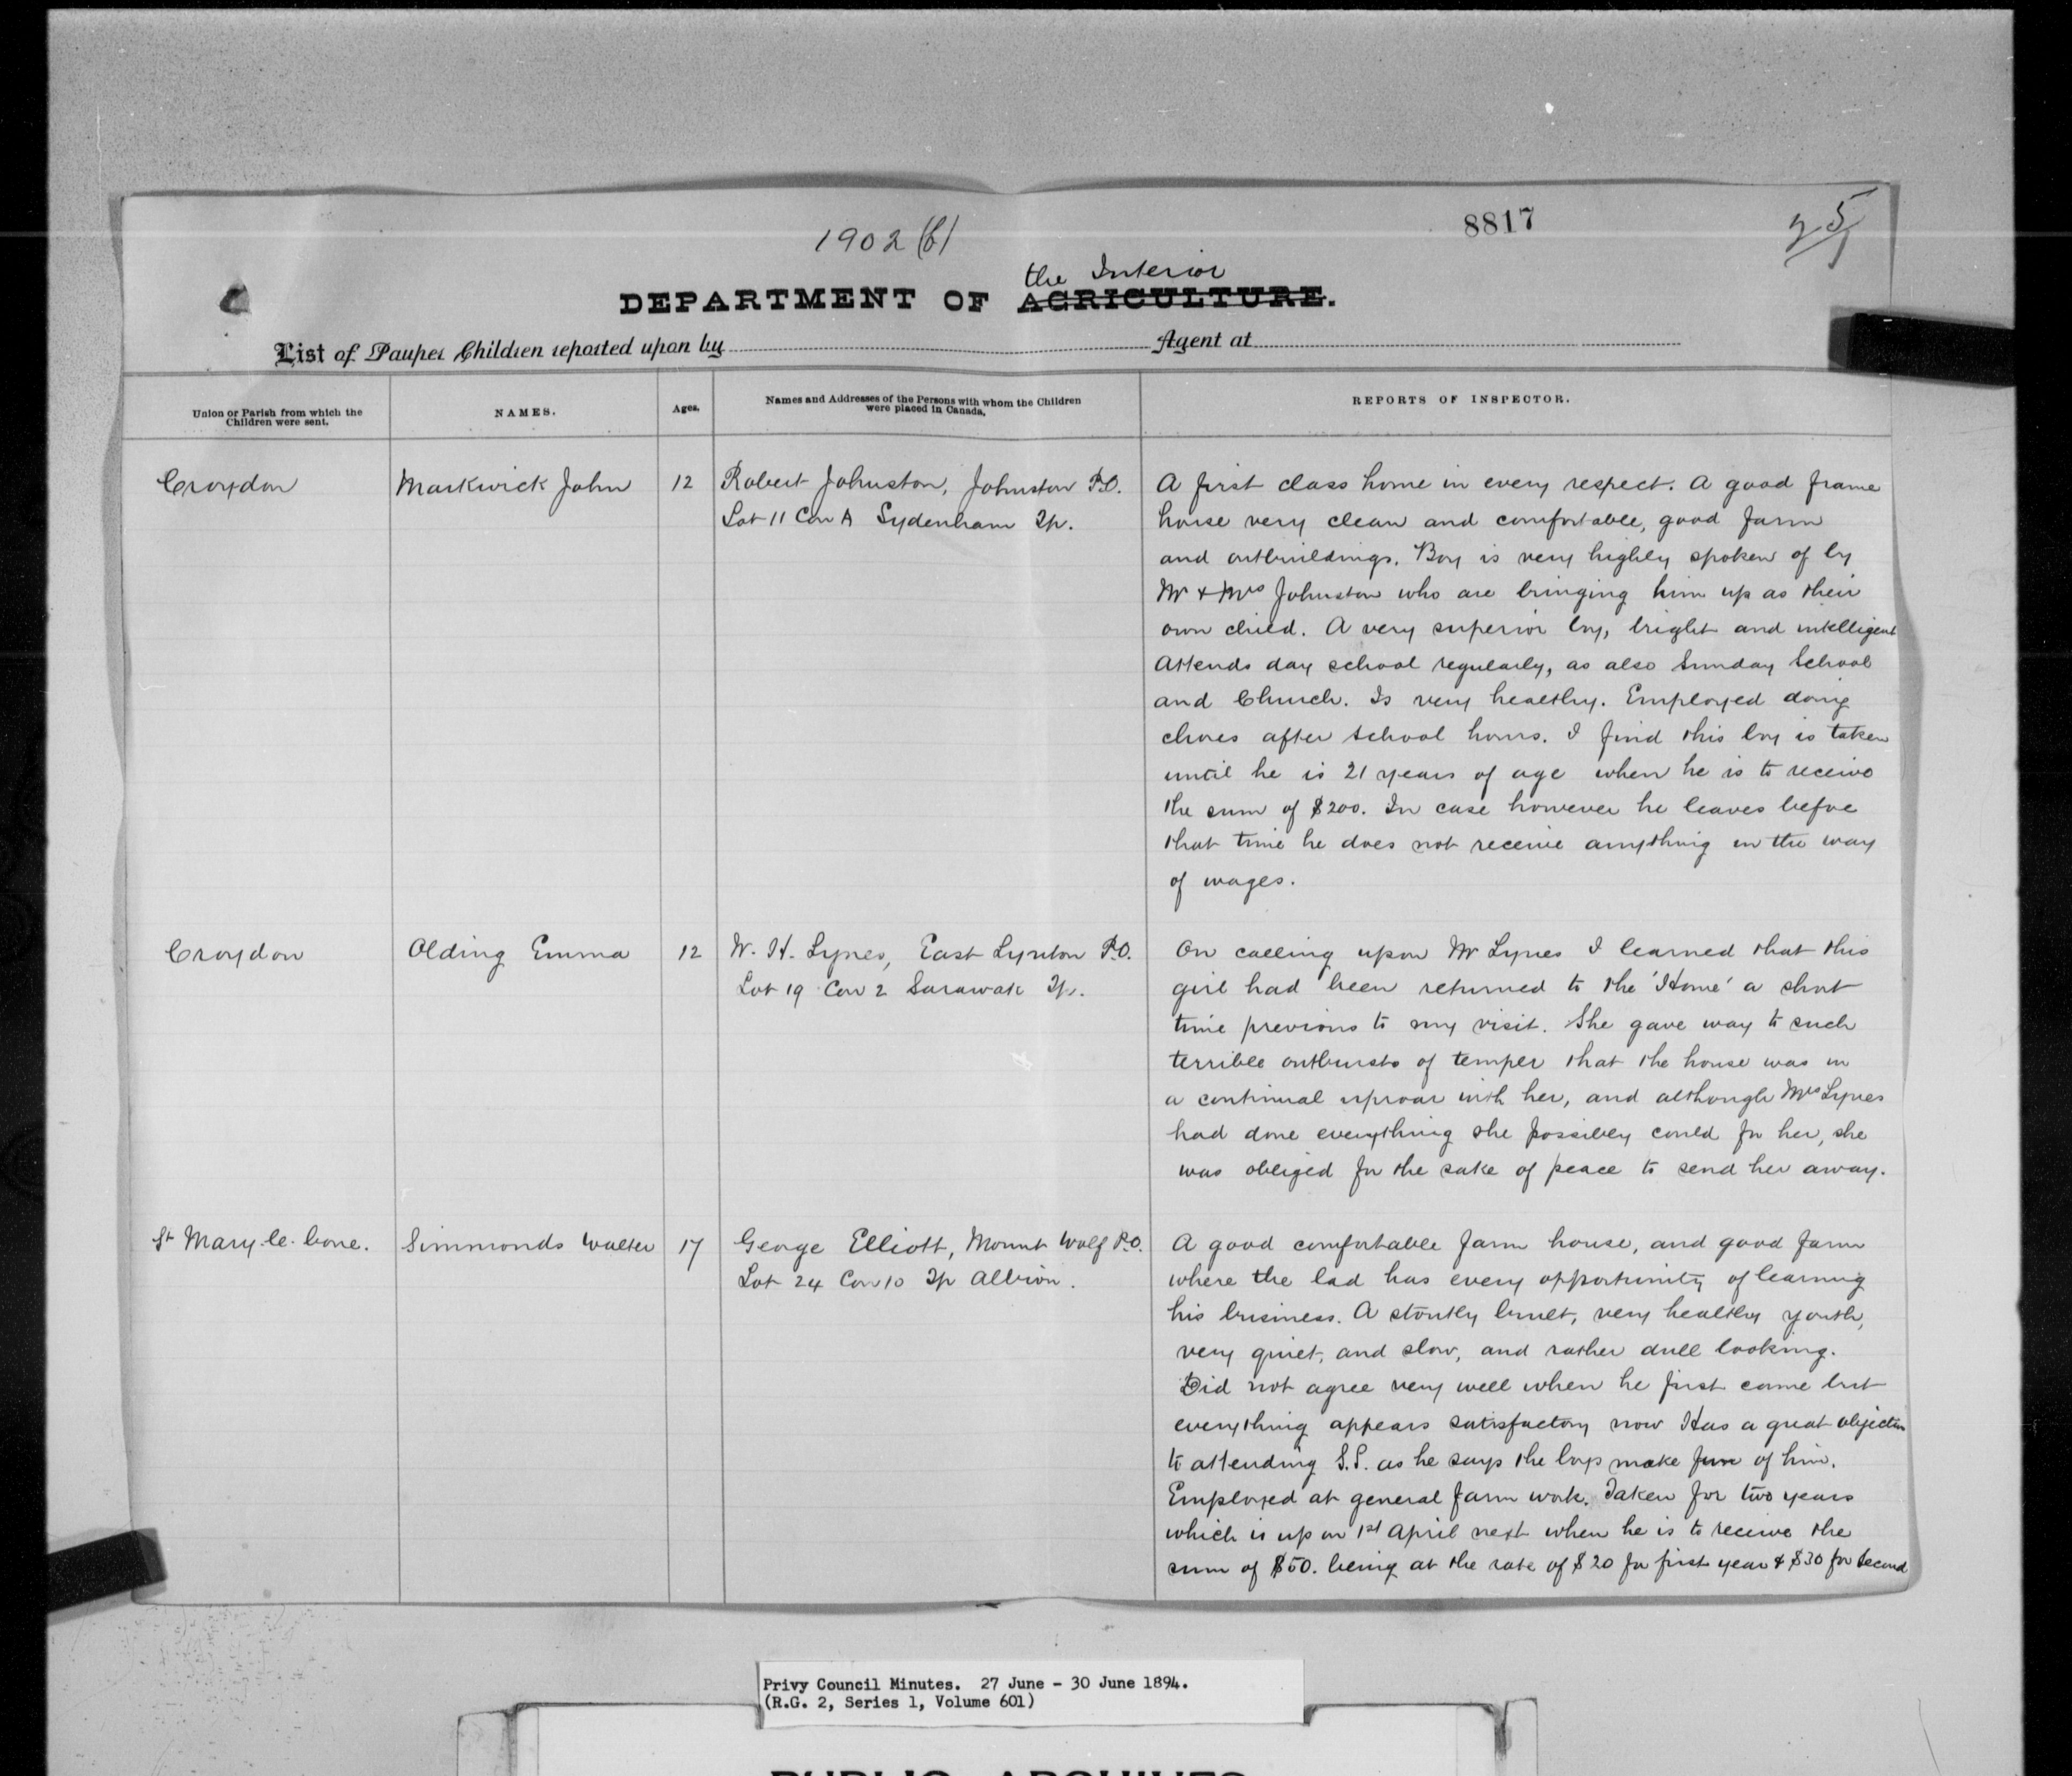 1902 (6)
8817
25
the Interior
DEPARTMENT OF AGRICULTURE.
List of Pauper Children reported upon by Agent at
Union or Parish from which the Children were sent.
NAMES.
Ages.
Names and Addresses of the Persons with whom the Children were placed in Canada.
REPORTS OF INSPECTOR.
Croydon
Markwick John
12
Robert Johnston, Johnston P.O.
Lot 11 Con A Sydenham Tp.
A first class home in every respect. A good frame
house very clean and comfortable, good farm
and outbuildings. Boy is very highly spoken of by
Mr + Mrs Johnston who are bringing him up as their
own child. A very superior boy, bright and intelligent
Attends day school regularly, as also Sunday School
and Church. Is very healthy. Employed doing
chores after school hours. I find this boy is taken
until he is 21 years of age when he is to receive
the sum of $200. In case however he leaves before
that time he does not receive anything in the way
of wages.
Croydon
Olding Emma
12
W. H. Lynes, East Lynton P.O.
Lot 19 Con 2 Sarawak Tp.
On calling upon Mr Lynes I learned that this
girl had been returned to the 'Home' a short
time previous to my visit. She gave way to such
terrible outbursts of temper that the house was in
a continual uproar with her, and although Mrs Lynes
had done everything she possibly could for her, she
was obliged for the sake of peace to send her away.
St Mary-le-bone.
Simmonds Walter
17
George Elliott, Mount Wolf P.O.
Lot 24 Con 10 Tp Albion.
A good comfortable farm house, and good farm
where the lad has every opportunity of learning
his business. A stoutly built, very healthy youth,
very quiet, and slow, and rather dull looking.
Did not agree very well when he first came but
everything appears satisfactory now Has a great objection
to attending S.S. as he says the boys make fun of him.
Employed at general farm work. Taken for two years
which is up on 1st April next when he is to receive the
sum of $50. being at the rate of $20 for first year & $30 for second
Privy Council Minutes. 27 June - 30 June 1894.
(R.G. 2, Series 1, Volume 601)
PUBLIC ARCHIVES